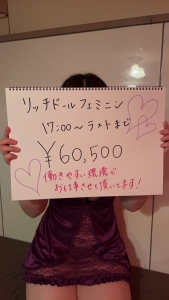 リッチドールフェミニン
17:00～ラストまで
¥60,500
働きやすい環境で
お仕事させて頂いてます!